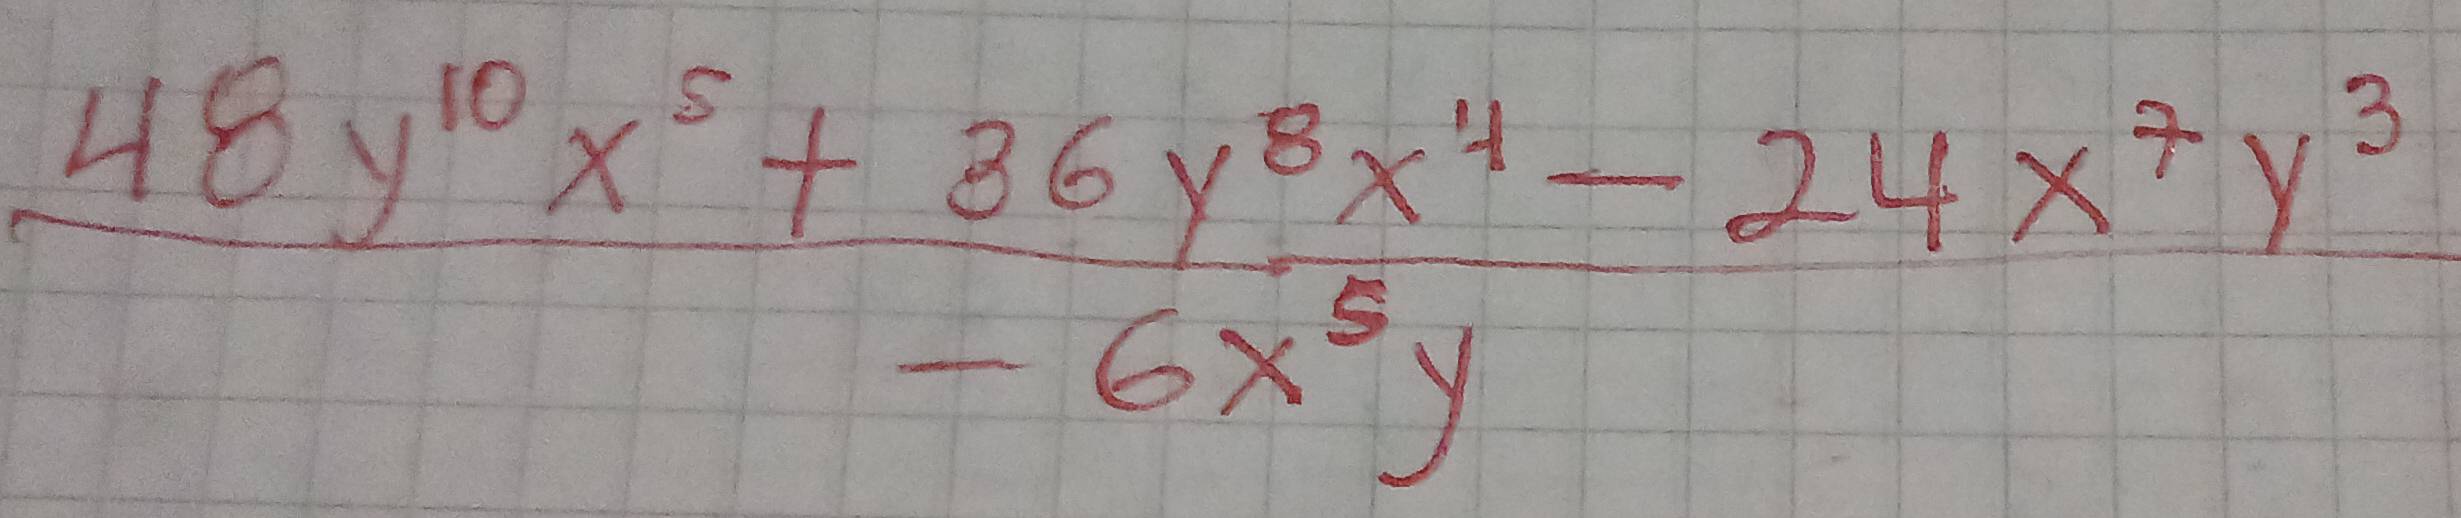 48y¹⁰x⁵ + 36y⁸x⁴ — 24x⁷y³
— 6x⁵y